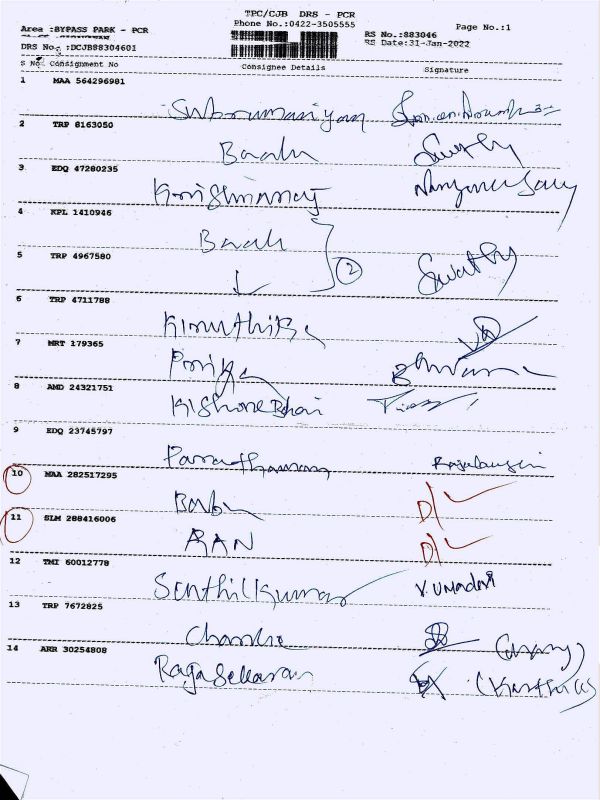 TPC/CJB DRS - PCR
Phone No.:0422-3505555
Page No.:1
Area :BYPASS PARK - PCR
RS No.:883046
DRS No.:DCJB88304601
RS Date:31-Jan-2022
S No Consignment No Consignee Details Signature
1 MAA 564296981
Subramaniyan
2 TRP 8163050
Baalu Swathy
3 EDQ 47280235
Krishnaraj
4 KPL 1410946
Baalu
5 TRP 4967580
2 Swathy
6 TRP 4711788
Kiruthika
7 MRT 179365
Priya
8 AMD 24321751
Kishore Bhai
9 EDQ 23745797
Paranthaman
10 MAA 282517295
Babu D/L
11 SLM 288416006
RAN D/L
12 TMI 60012778
Senthilkumar V. UMADEVI
13 TRP 7672825
Chandra
14 ARR 30254808
Rajasekaran (Karthik)